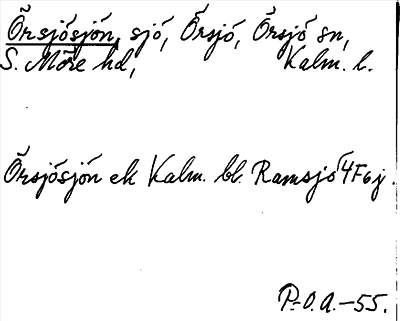 Örsjösjön, sjö, Örsjö, Örsjö sn,
S. Möre hd, Kalm. l.
Örsjösjön ek Kalm. bl. Ramsjö 4F6j.
P.O.A.-55.